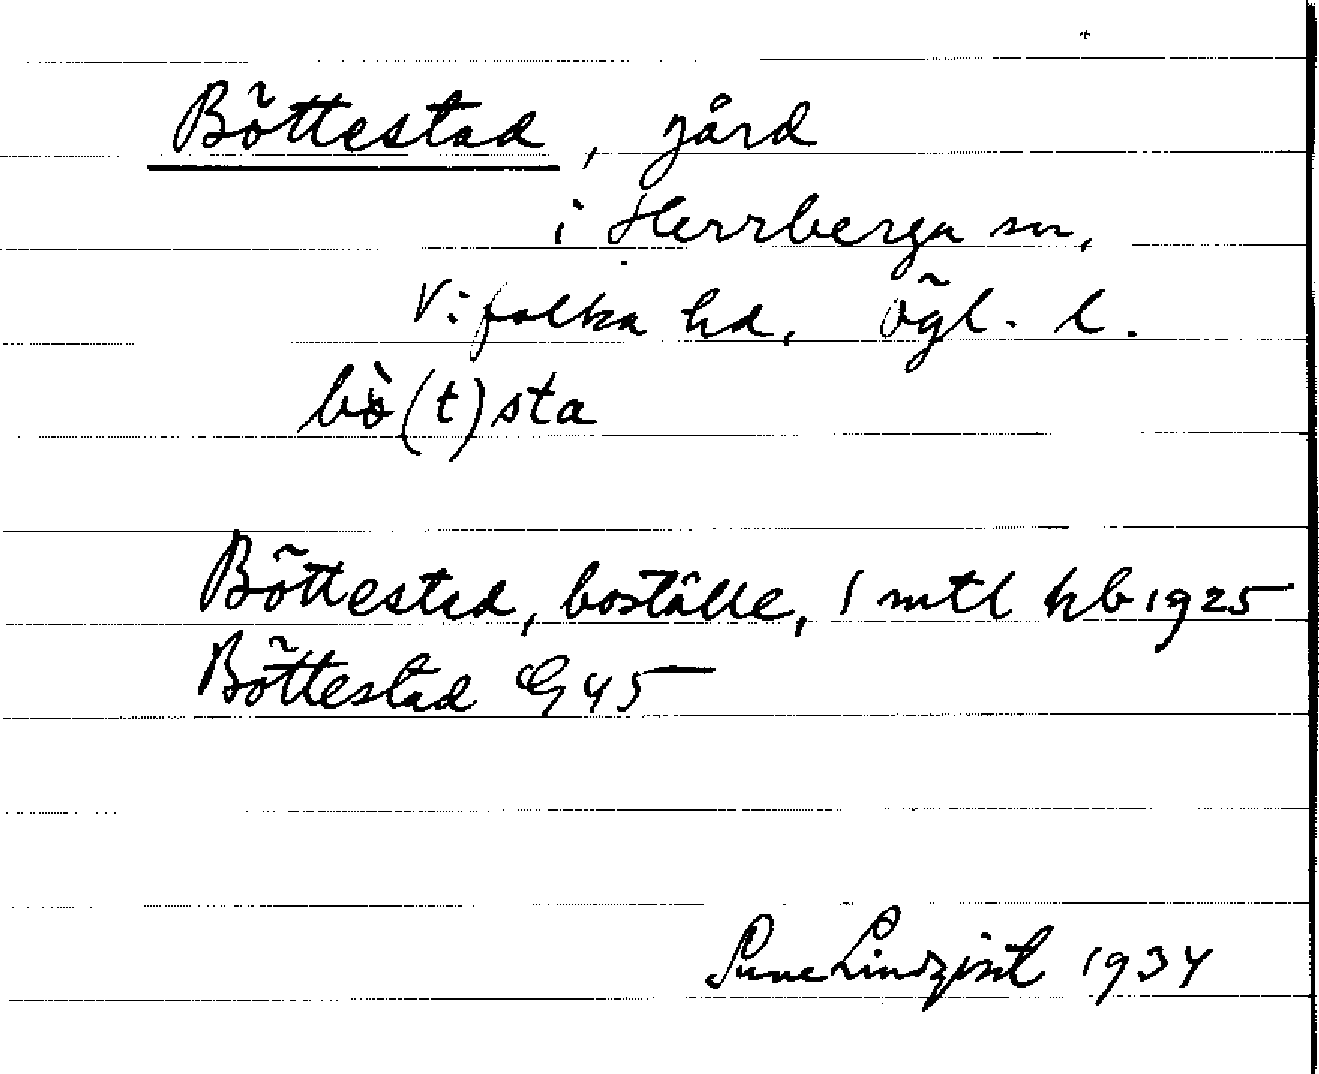 Böttestad, gård
i Herrberga sn,
Vifolka hd, Ögl. l.
bò(t)sta
Böttestad, boställe, 1 mtl hb 1925
Böttestad G 45
Sune Lindqvist 1934